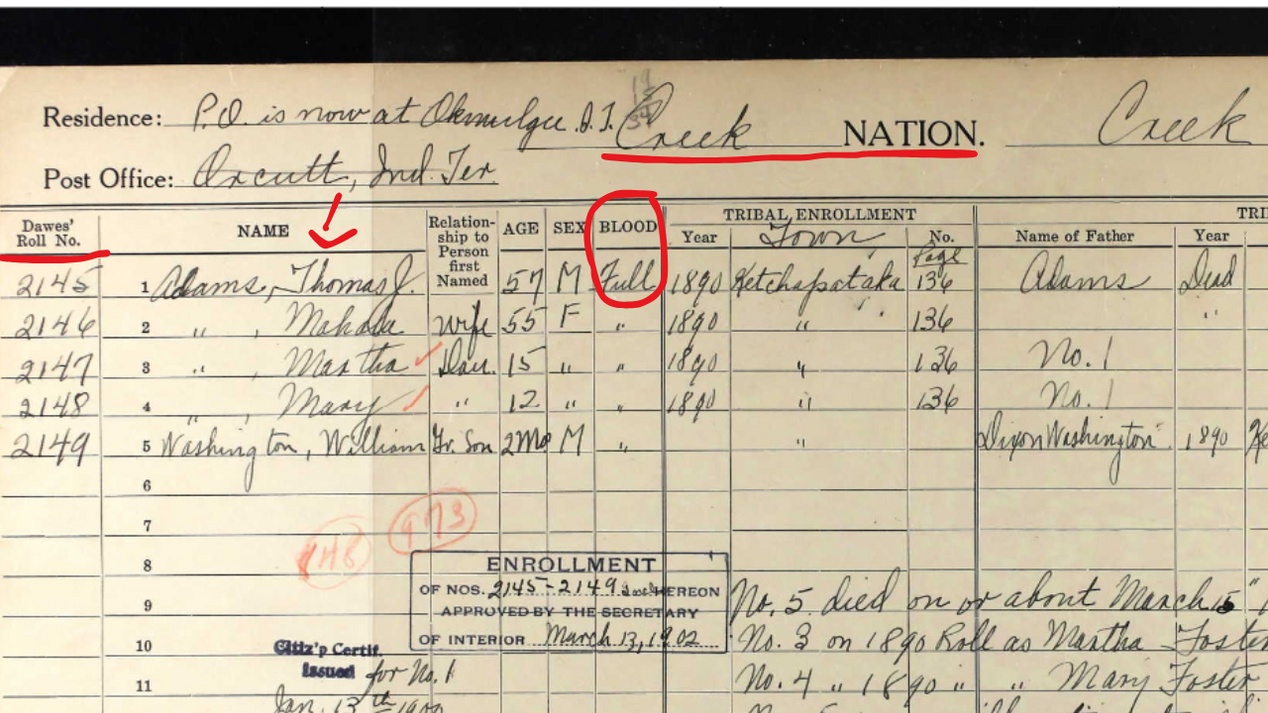 Residence: P.O. is now at Okmulgee I.T. Creek NATION. Creek
Post Office: Orcutt, Ind. Ter.
Dawes' Roll No. NAME Relationship to Person first Named AGE SEX BLOOD TRIBAL ENROLLMENT TRI
Year Town No. Page Name of Father Year
2145 1 Adams, Thomas J. 57 M Full 1890 Ketchapataka 136 Adams Dead
2146 2 " , Mahala Wife 55 F " 1890 " 136 "
2147 3 " , Martha Dau. 15 " " 1890 " 136 No. 1
2148 4 " , Mary " 12 " " 1890 " 136 No. 1
2149 5 Washington, William Gr. Son 2Mo M " " Dixon Washington 1890 Ke
6
7
973
148
8
ENROLLMENT
OF NOS. 2145-2149 HEREON
APPROVED BY THE SECRETARY
OF INTERIOR March 13, 1902
9 No. 5 died on or about March 15
10 No. 3 on 1890 Roll as Martha Foster
Citiz'p Certif.
Issued for No. 1
11 No. 4 " 1890 " " Mary Foster
Jan. 13th